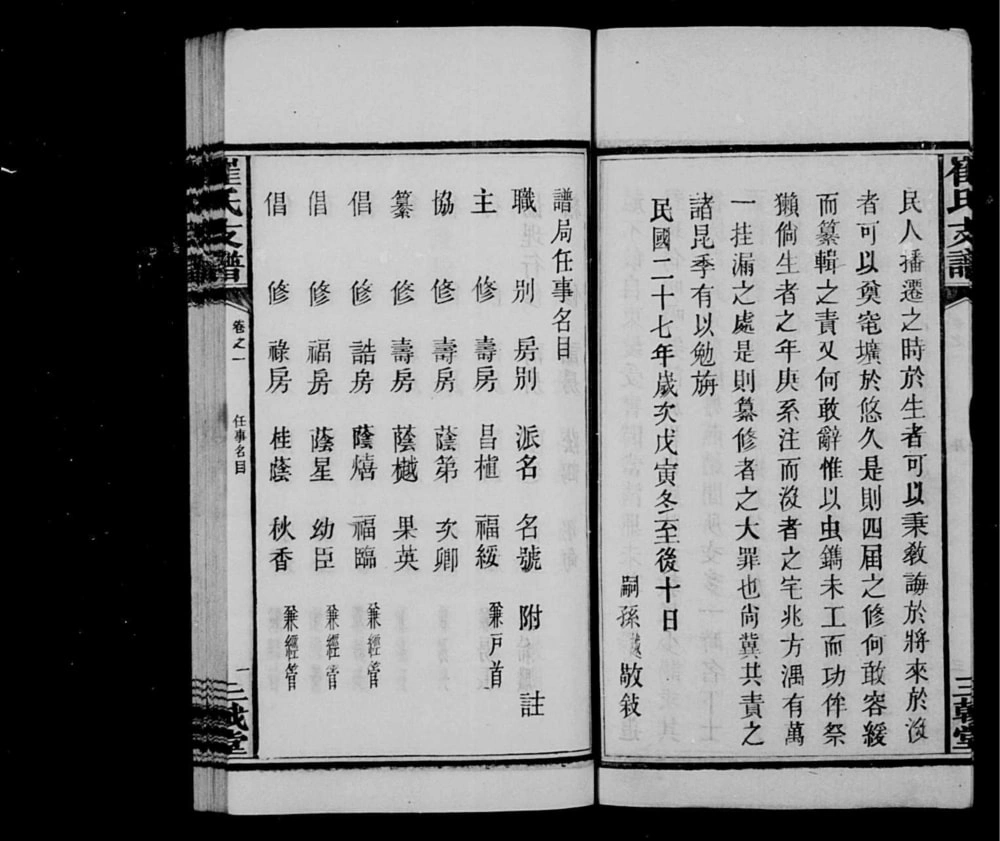 民人播遷之時於生者可以秉敎誨於將來於沒
者可以奠窀壙於悠久是則四屆之修何敢容緩
而纂輯之責又何敢辭惟以虫鐫未工而功侔祭
獺倘生者之年庚系注而沒者之宅兆方湡有萬
一挂漏之處是則纂修者之大罪也尙冀其責之
諸昆季有以勉旃
民國二十七年歲次戊寅冬至後十日
嗣孫樾敬敍
崔氏支譜
卷之一
任事名目
一
三戟堂
譜局任事名目
職別 房別 派名 名號 附註
主修 壽房 昌植 福綏 兼戸首
協修 壽房 蔭第 次卿
纂修 壽房 蔭樾 果英
倡修 誥房 蔭熺 福臨 兼經管
倡修 福房 蔭星 幼臣 兼經管
倡修 祿房 桂蔭 秋香 兼經管